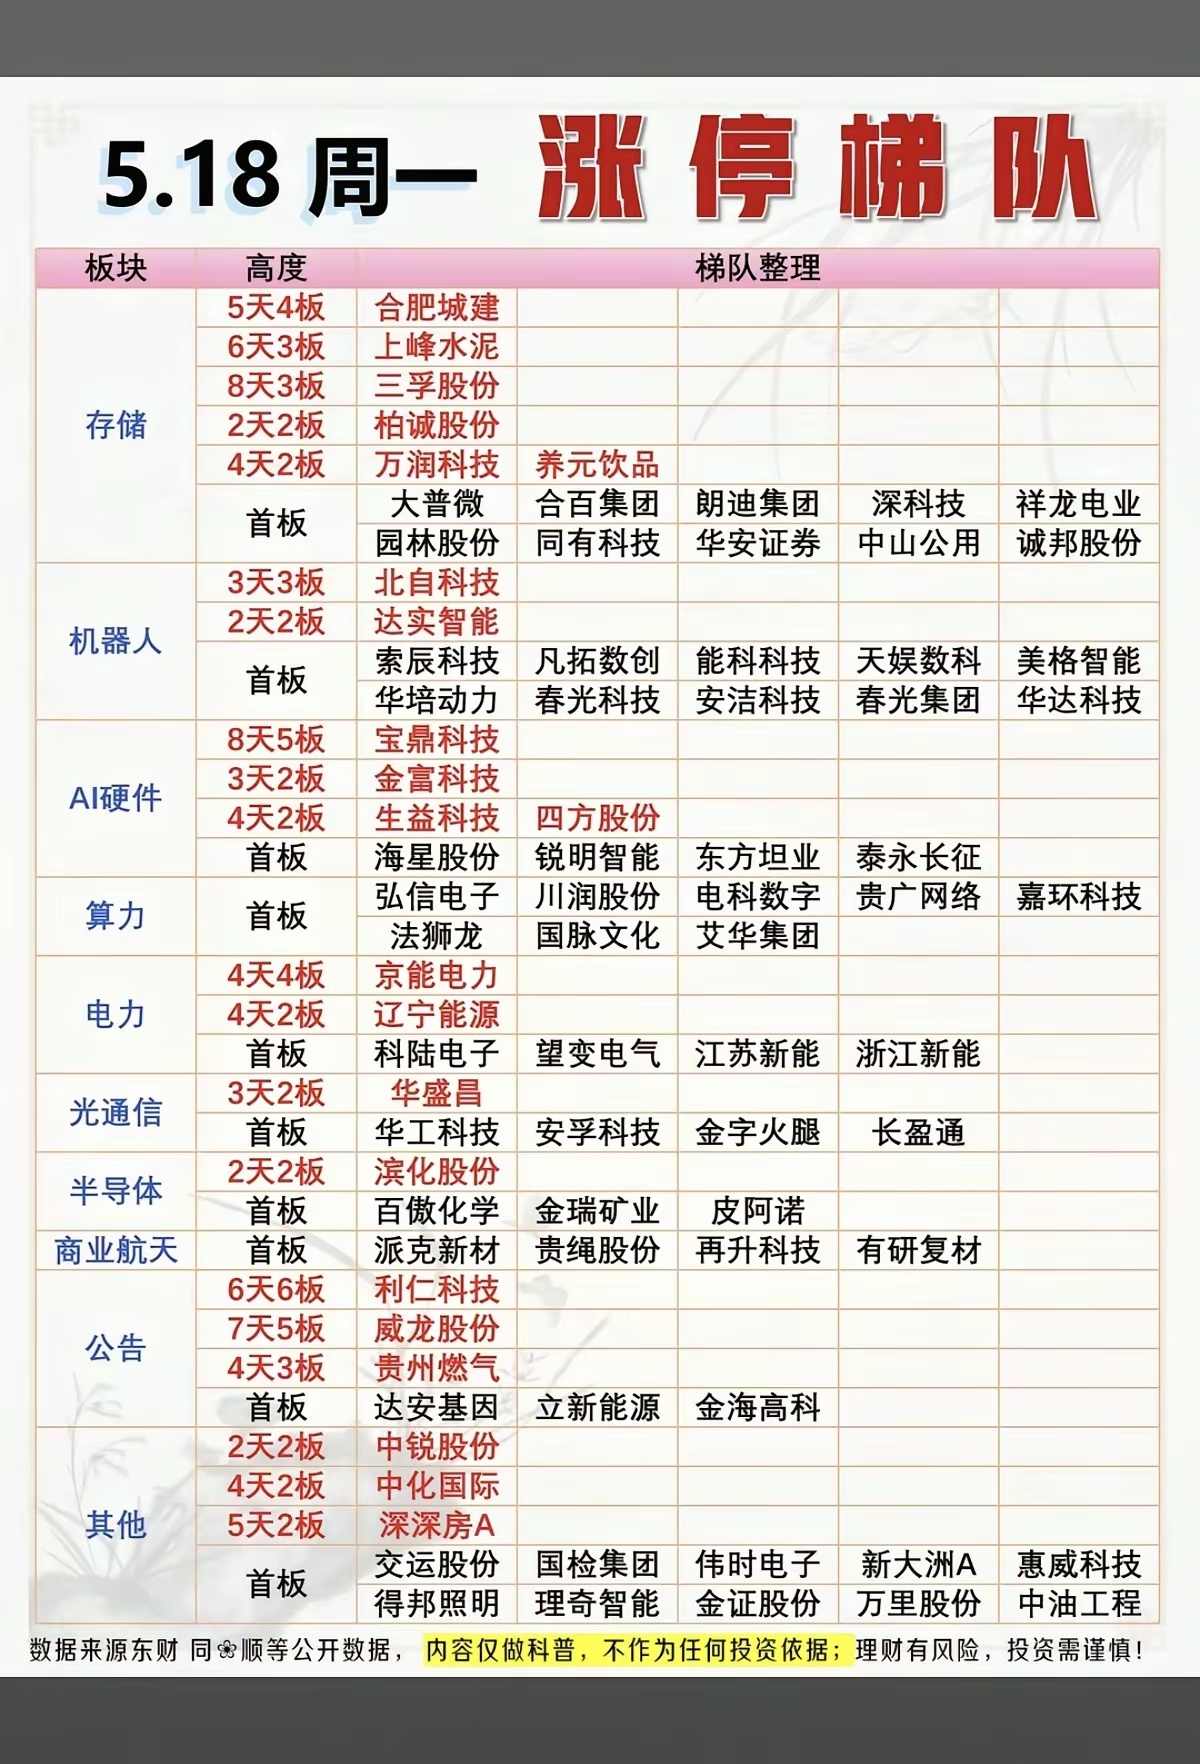 5.18 周一 涨停梯队
板块 高度 梯队整理
存储
5天4板 合肥城建
6天3板 上峰水泥
8天3板 三孚股份
2天2板 柏诚股份
4天2板 万润科技 养元饮品
首板
大普微 合百集团 朗迪集团 深科技 祥龙电业
园林股份 同有科技 华安证券 中山公用 诚邦股份
机器人
3天3板 北自科技
2天2板 达实智能
首板
索辰科技 凡拓数创 能科科技 天娱数科 美格智能
华培动力 春光科技 安洁科技 春光集团 华达科技
AI硬件
8天5板 宝鼎科技
3天2板 金富科技
4天2板 生益科技 四方股份
首板 海星股份 锐明智能 东方坦业 泰永长征
算力
首板
弘信电子 川润股份 电科数字 贵广网络 嘉环科技
法狮龙 国脉文化 艾华集团
电力
4天4板 京能电力
4天2板 辽宁能源
首板 科陆电子 望变电气 江苏新能 浙江新能
光通信
3天2板 华盛昌
首板 华工科技 安孚科技 金字火腿 长盈通
半导体
2天2板 滨化股份
首板 百傲化学 金瑞矿业 皮阿诺
商业航天 首板 派克新材 贵绳股份 再升科技 有研复材
公告
6天6板 利仁科技
7天5板 威龙股份
4天3板 贵州燃气
首板 达安基因 立新能源 金海高科
其他
2天2板 中锐股份
4天2板 中化国际
5天2板 深深房A
首板
交运股份 国检集团 伟时电子 新大洲A 惠威科技
得邦照明 理奇智能 金证股份 万里股份 中油工程
数据来源东财 同❀顺等公开数据，内容仅做科普，不作为任何投资依据；理财有风险，投资需谨慎！